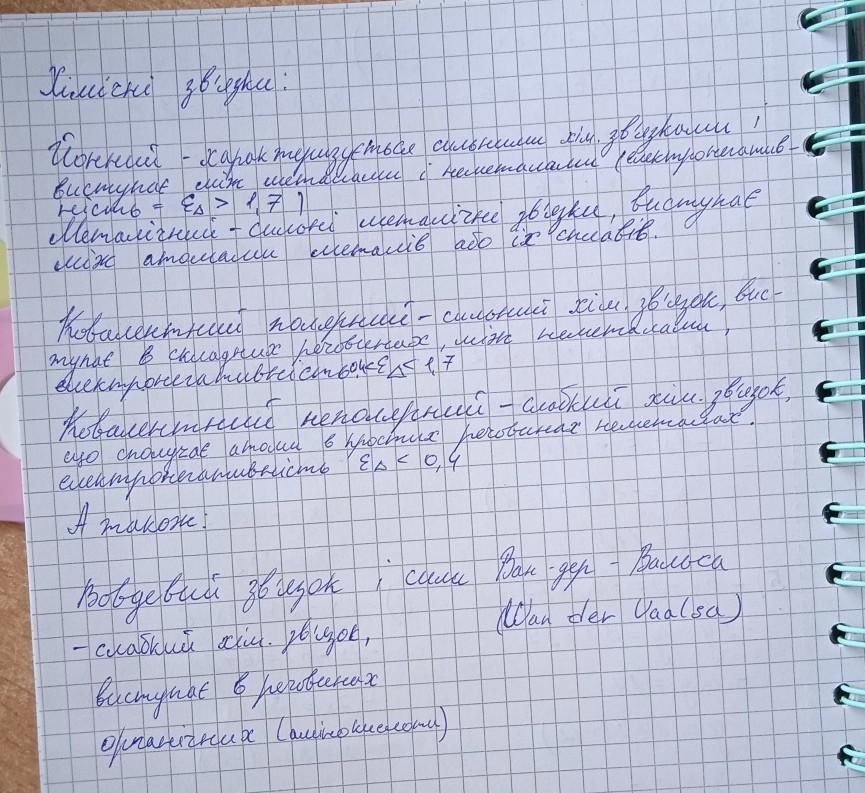 Хімісні зв'язки:
Йонний - характеризується сильними хім. зв'язками і
виступає між металами і неметалами (електронегатив-
ність = ε∆ > 1,7)
Металічний - сильні металічні зв'язки, виступає
між атомами металів або їх сплавів.
Ковалентний полярний - сильний хім. зв'язок, вис-
тупає в складних речовинах, між неметалами,
електронегативність 0,4<ε∆< 1,7
Ковалентний неполярний - слабкий хім. зв'язок,
що сполучає атоми в простих речовинах неметалах.
електронегативність ε∆ < 0,4
А також:
Вовдевий зв'язок і сили Ван-дер-Вальса
(Wan der Vaalsa)
- слабкий хім. зв'язок,
виступає в речовинах
органічних (амінокислоти)